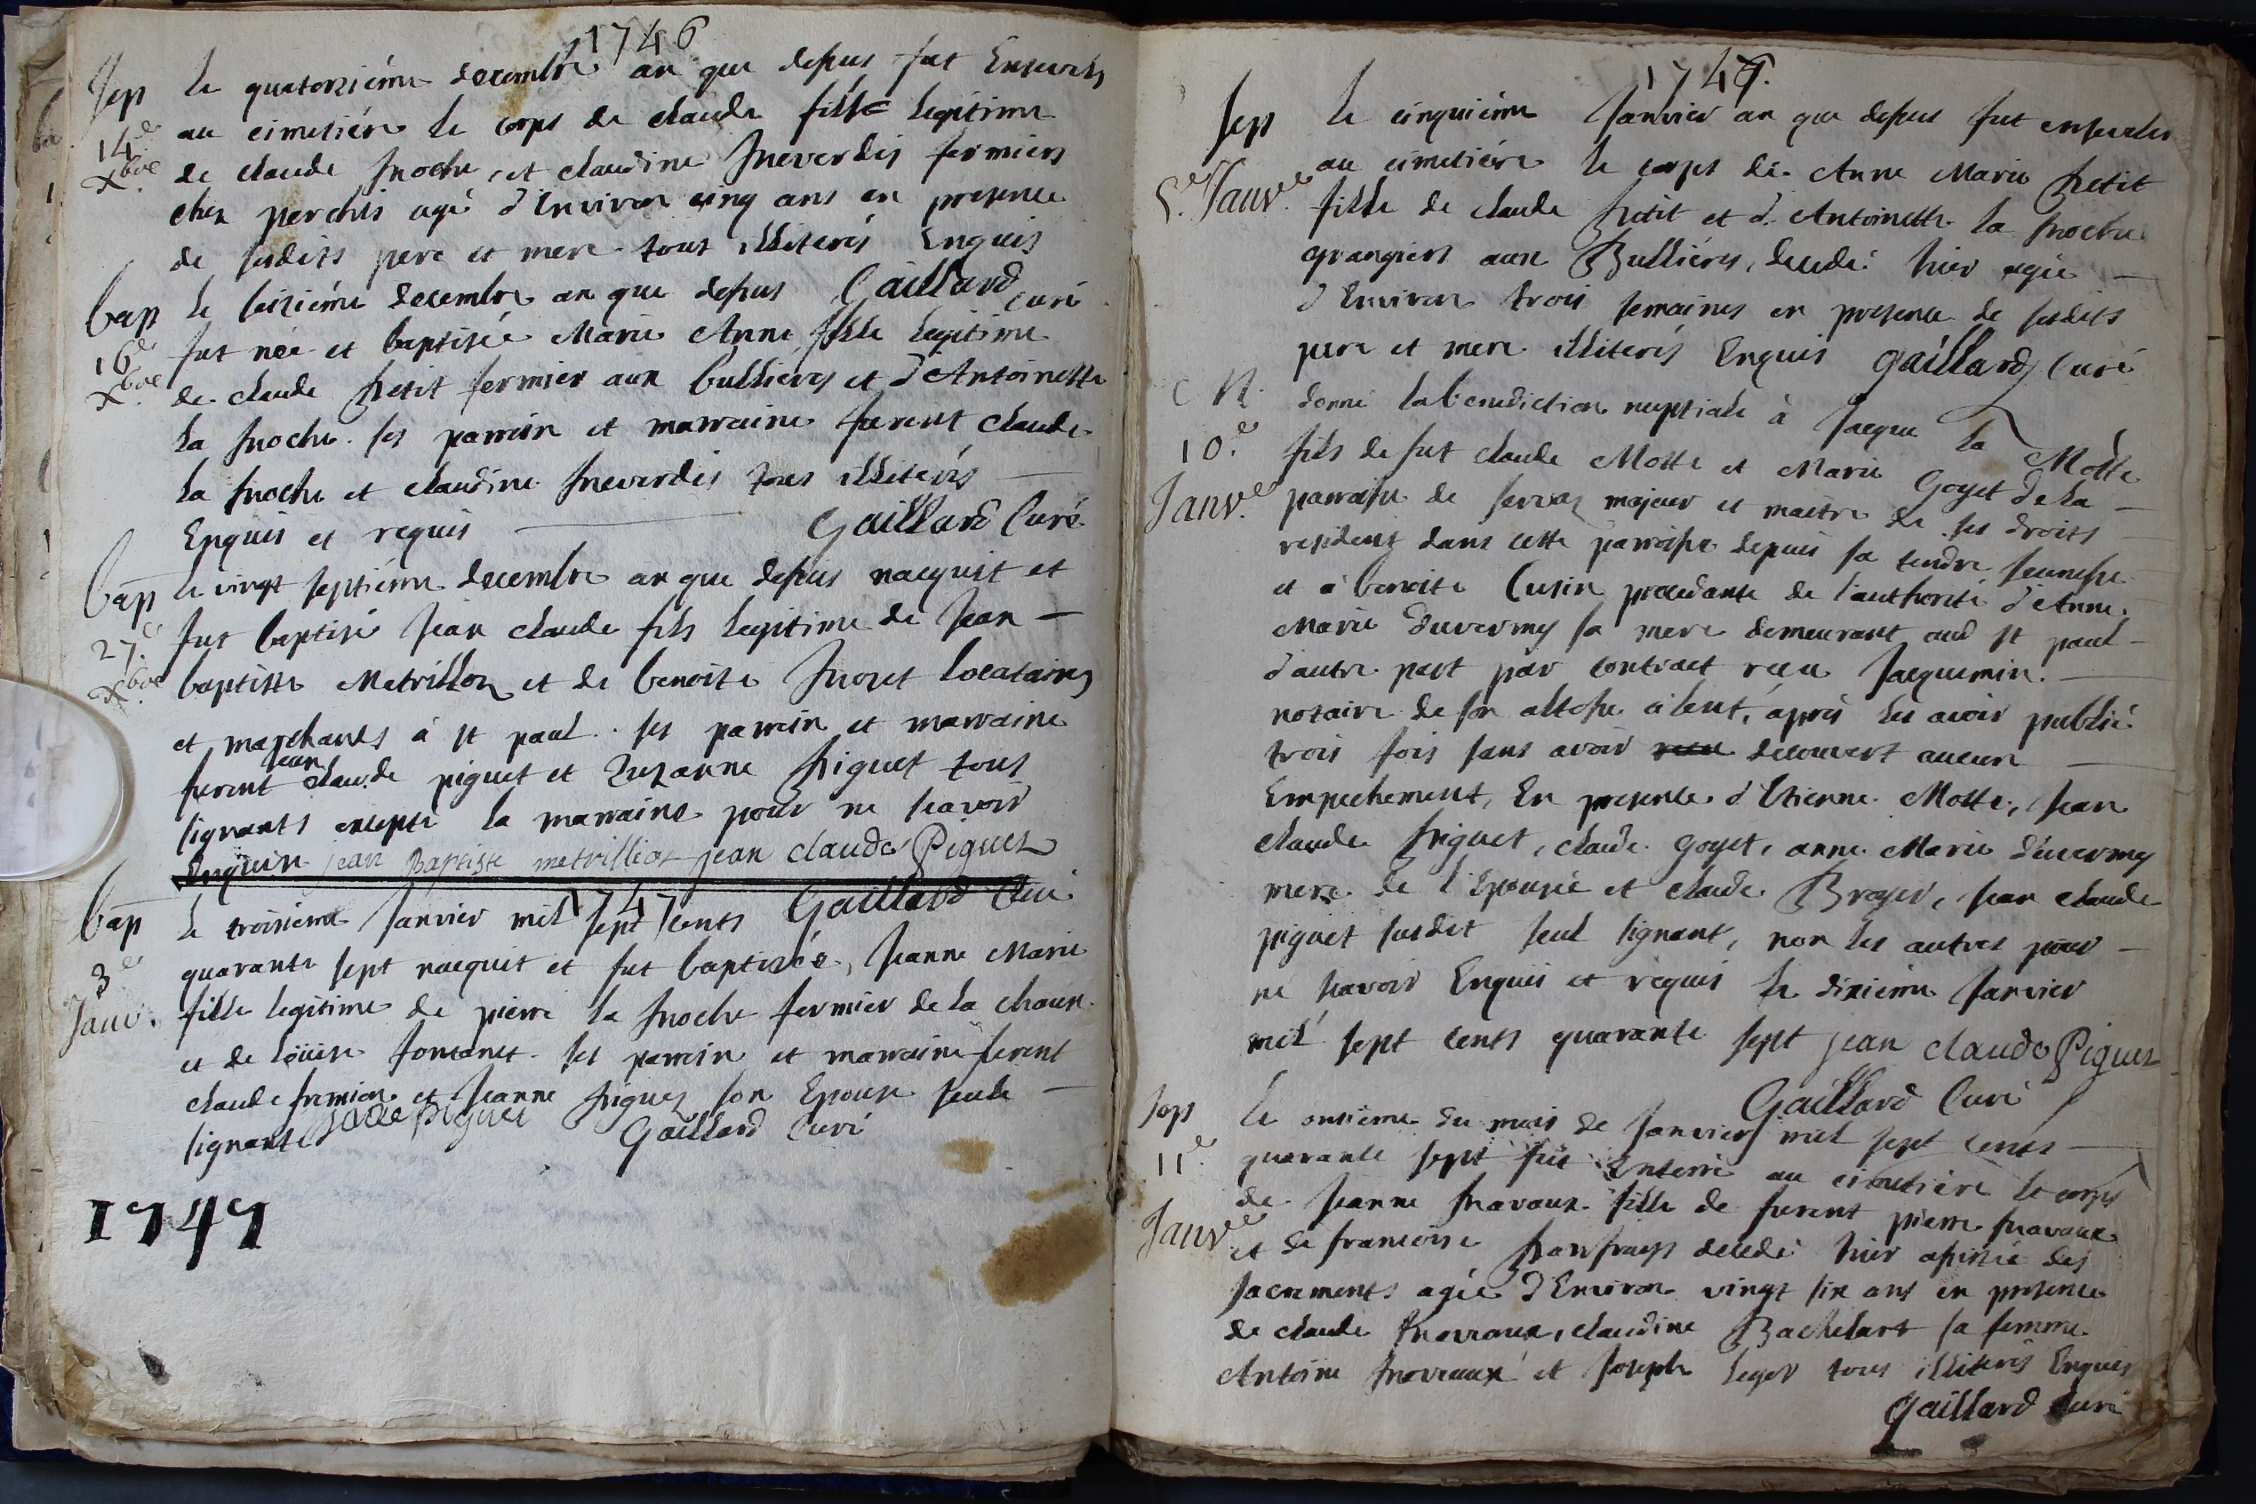 1746
Sep le quatorziéme decembre an que dessus fut Enseveli
14e au cimetiére le corps de claude fille legitime
xbre de claude Proche, et claudine Preverdis fermiers
chez perchis agé d'Environ cinq ans en presence
de susdits pere et mere tous illiterés Enquis
Gaillard curé
bap le seiziéme decembre an que dessus
16e fut née et baptisée Marie Anne fille legitime
xbre de claude Petit fermier aux bullieres et d'Antoinette
la Proche. ses parrein et marraine furent claude
la Proche et claudine Preverdis tous illiterés
Enquis et requis Gaillard Curé
bap le vingt septiéme decembre an que dessus nacquit et
27e fut baptisé Jean claude fils legitime de Jean
xbre baptiste Metrillon et de benoite Prozet locataires
et marchands à st paul. ses parrein et marraine
furent Jean claude piguet et Suzanne Piguet tous
signants excepté la marraine pour ne scavoir
Enquise jean Baptiste metrilliot jean claude Piguet
Gaillard Curé
1747
bap le troisiéme Janvier mil sept cents
3e quarante sept nacquit et fut baptisée, Jeanne Marie
Janv. fille legitime de pierre la Proche fermier de la chaux
et de loüise fontanet. ses parrein et marraine furent
claude fremion et Jeanne Piguet son Epouse seule
signante Jane Piguet Gaillard Curé
1747
1747.
Sep le cinquiéme Janvier an que dessus fut enseveli
5e Janve. au cimetiére le corps de Anne Marie Petit
fille de claude Petit et d'Antoinette la Proche
grangiers aux Bulliéres, decedé hier agée
d'Environ trois semaines en presence de susdits
pere et mere illiterés Enquis Gaillard Curé
N. donné la benediction nuptiale à Jacque la Motte
10e fils de fut claude Motte et Marie Goyet de la
Janve. parroisse de servaz majeur et maitre de ses droits
residens dans cette parroisse depuis sa tendre Jeunesse
et à benoite Cusin procedante de l'authorité d'Anne
Marie Duvernay sa mere demeurant aud st paul
d'autre part par contract recu Jacquemin
notaire de son altesse à lent, aprés les avoir publié
trois fois sans avoir decouvert aucun
Empechement, En presence d'Etienne Motte, Jean
claude Piguet, claude goyet, anne Marie Duvernay
mere de l'Epousée et claude Broyer, Jean claude
piguet susdit seul signant, non les autres pour
ne scavoir Enquis et requis le dixiéme Janvier
mil sept cents quarante sept jean claude Piguet
Gaillard Curé
Sep le onziéme du mois de Janvier mil sept cents
11e quarante sept fut Enterré au cimetiére le corps
Janve de Jeanne Pravaux fille de furent pierre Pravaux
et de francoise decedé hier assistée des
sacrements agée d'Environ vingt six ans en presence
de claude Pravaux, claudine Bachelart sa femme
Antoine Pravaux et Joseph leger tous illiterés Enquis
Gaillard Curé